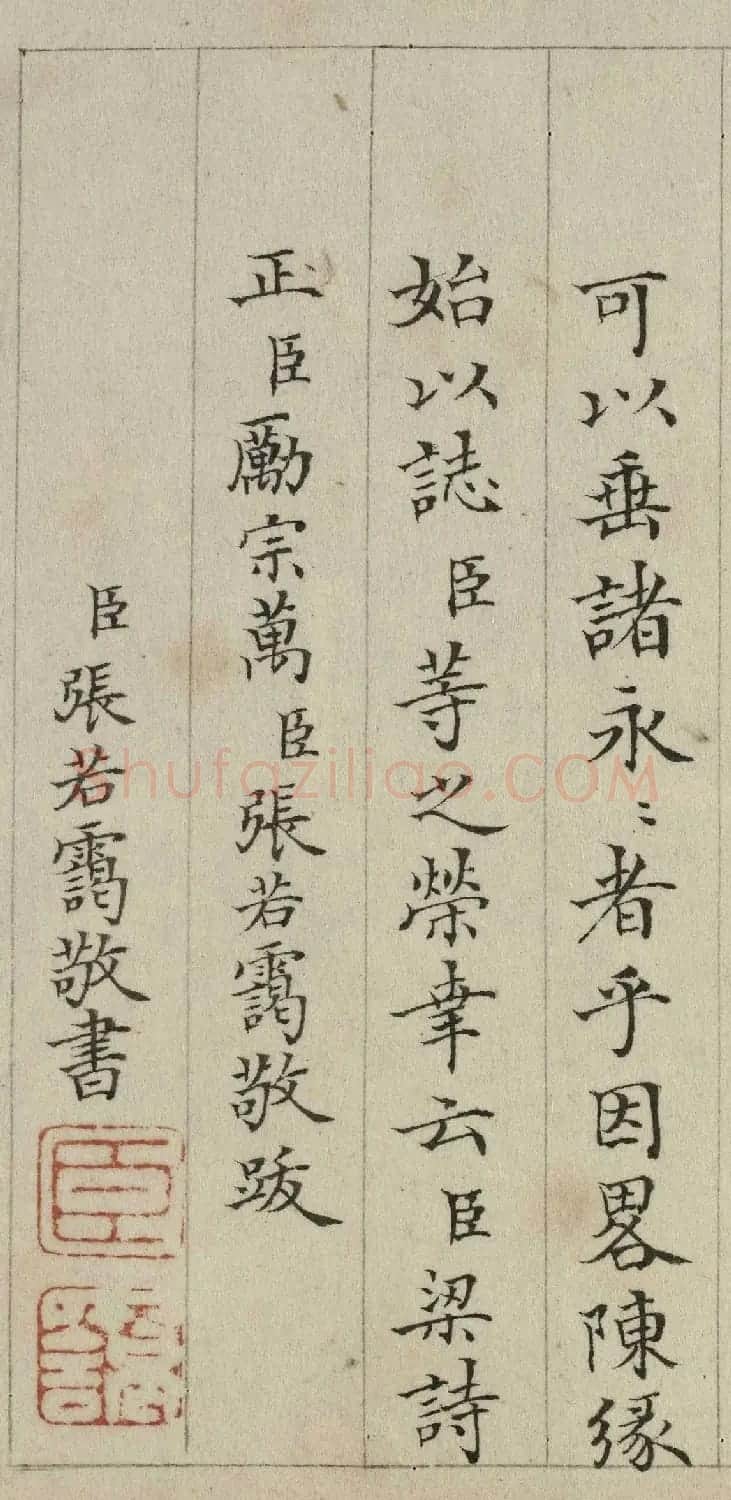 可以垂諸永〻者乎因畧陳緣
始以誌臣等之榮幸云臣梁詩
正臣勵宗萬臣張若靄敬跋
臣張若靄敬書
臣
shufaziliao.COM